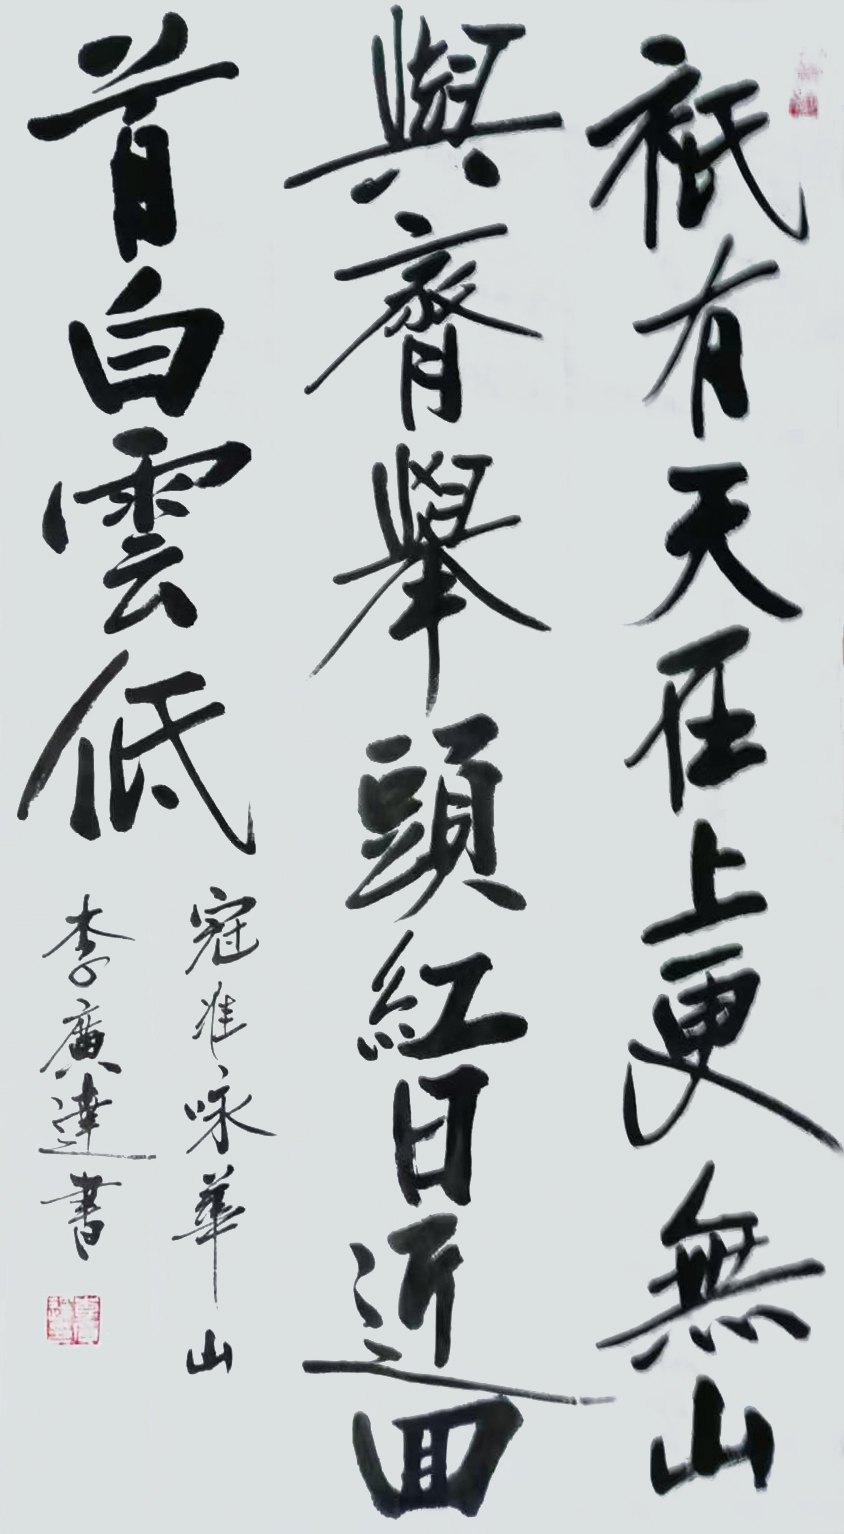 祇有天在上更無山
與齊舉頭紅日近回
首白雲低
寇準咏華山
李廣達書